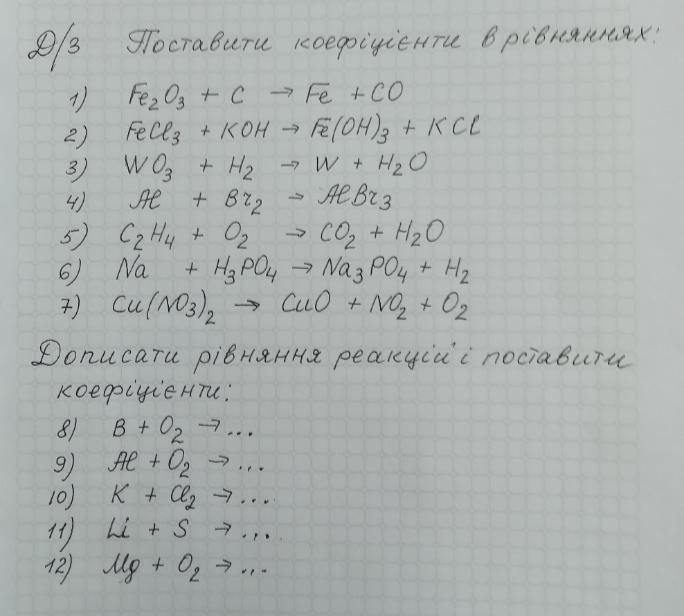 Д/З Поставити коефіцієнти в рівняннях:
1) Fe₂O₃ + C → Fe + CO
2) FeCl₃ + KOH → Fe(OH)₃ + KCl
3) WO₃ + H₂ → W + H₂O
4) Al + Br₂ → AlBr₃
5) C₂H₄ + O₂ → CO₂ + H₂O
6) Na + H₃PO₄ → Na₃PO₄ + H₂
7) Cu(NO₃)₂ → CuO + NO₂ + O₂
Дописати рівняння реакцій і поставити
коефіцієнти:
8) B + O₂ → ...
9) Al + O₂ → ...
10) K + Cl₂ → ...
11) Li + S → ...
12) Mg + O₂ → ...